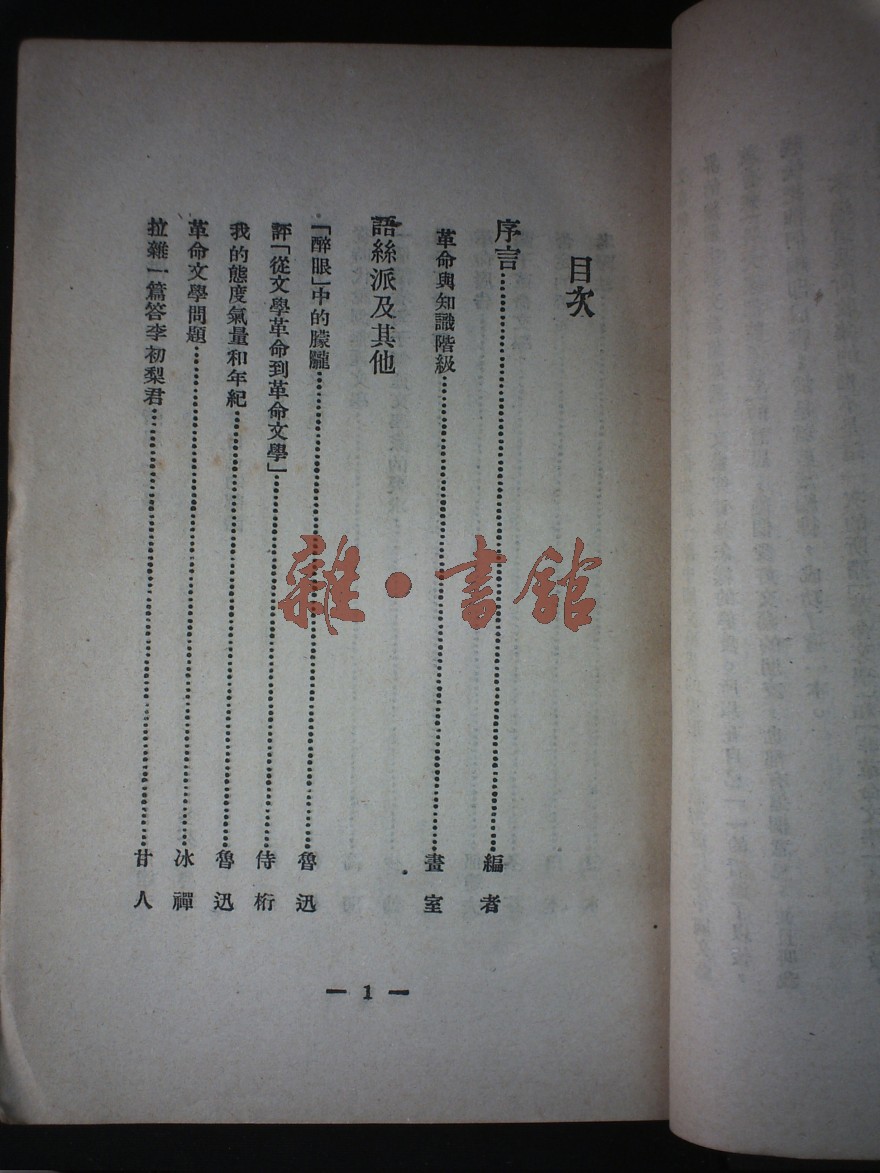 目次
序言……編者
革命與知識階級……畫室
語絲派及其他
「醉眼」中的朦朧……魯迅
評「從文學革命到革命文學」……侍桁
我的態度氣量和年紀……魯迅
革命文學問題……冰禪
拉雜一篇答李初梨君……甘人
— 1 —
雜·書館